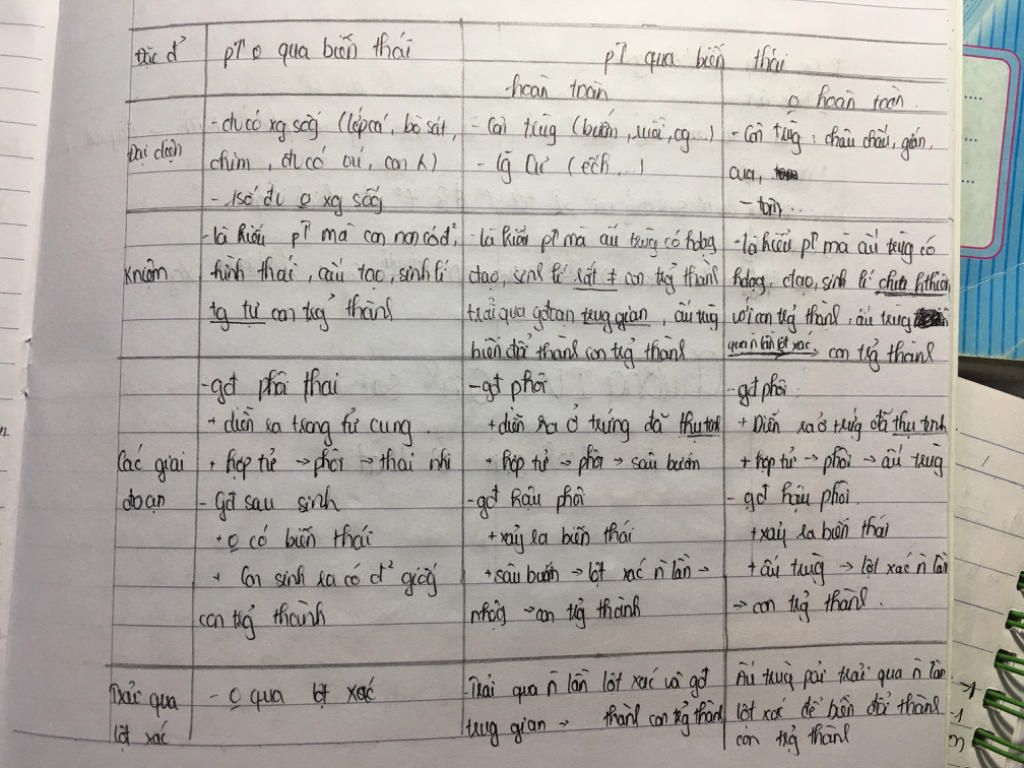 Đặc đ²
pT o qua biến thái
pT qua biến thái
hoàn toàn
o hoàn toàn.
Đại diện
- đv có xg sống (lớp cá, bò sát,
chim, đv có vú, con
- 1số đv o xg sống
- Côn trùng (bướm, ruồi, og...)
- lg cư (ếch...)
- Côn trùng: châu chấu, gián,
cua,
- tôm...
K niệm
- là kiểu pT mà con non có đ²,
hình thái, cấu tạo, sinh lí
tg tự con trg thành
- là kiểu pT mà ấu trùng có hdag
ctạo, sinh lí rất ≠ con trg thành
trải qua gđoạn trug gian, ấu trùg
biến đổi thành con trg thành
- là kiểu pT mà ấu trùg có
hdag, ctạo, sinh lí chưa hthiện
với con trg thành, ấu trùng
qua n lần lột xác → con trg thành
Các giai
đoạn
- gđ phôi thai
+ diễn ra trong tử cung.
+ hợp tử → phôi → thai nhi
- Gđ sau sinh
+ o có biến thái
+ Con sinh ra có đ² giống
con trg thành
- gđ phôi
+ diễn ra ở trứng đã thụ tinh
+ hợp tử → phôi → sâu bướm
- gđ hậu phôi
+ xảy ra biến thái
+ sâu bướm → lột xác n lần →
nhộng → con trg thành
- gđ phôi.
+ Diễn ra ở trứg đã thụ tinh
+ hợp tử → phôi → ấu trùg
- gđ hậu phôi.
+ xảy ra biến thái
+ ấu trùg → lột xác n lần
→ con trg thành.
Trải qua
lột xác
- o qua lột xác
- Trải qua n lần lột xác và gđ
trug gian → thành con trg thành
Ấu trùg pải trải qua n lần
lột xác để biến đổi thành
con trg thành